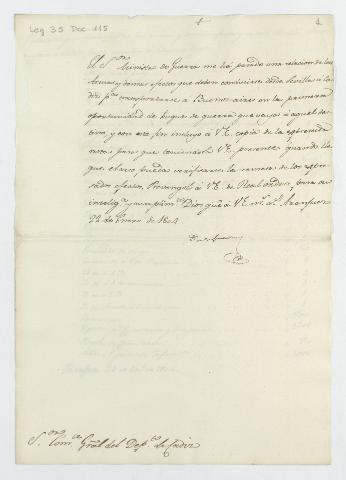 Leg 35 Doc. 115
El S.or Ministro de Guerra me ha pasado una relacion de las
Armas y demas efectos que deben conducirse desde Sevilla á
p.a transportarse á Buenos aires en la primera
oportunidad de buque de guerra que vaya á aquel des
tino, y con este fin incluyo á V.E. copia de la expresada
nota para que teniendola V.E. presente quando lle
que el caso pueda verificarse la remesa de los expre
sados efectos. Prevengolo á V.E. de Real orden para su
intelig.a y cumplim.to Dios gue á V.E. m.s a.s Aranjuez
22 de Enero de 1804
S.or Com.te Gral del Dep.to de Cadiz